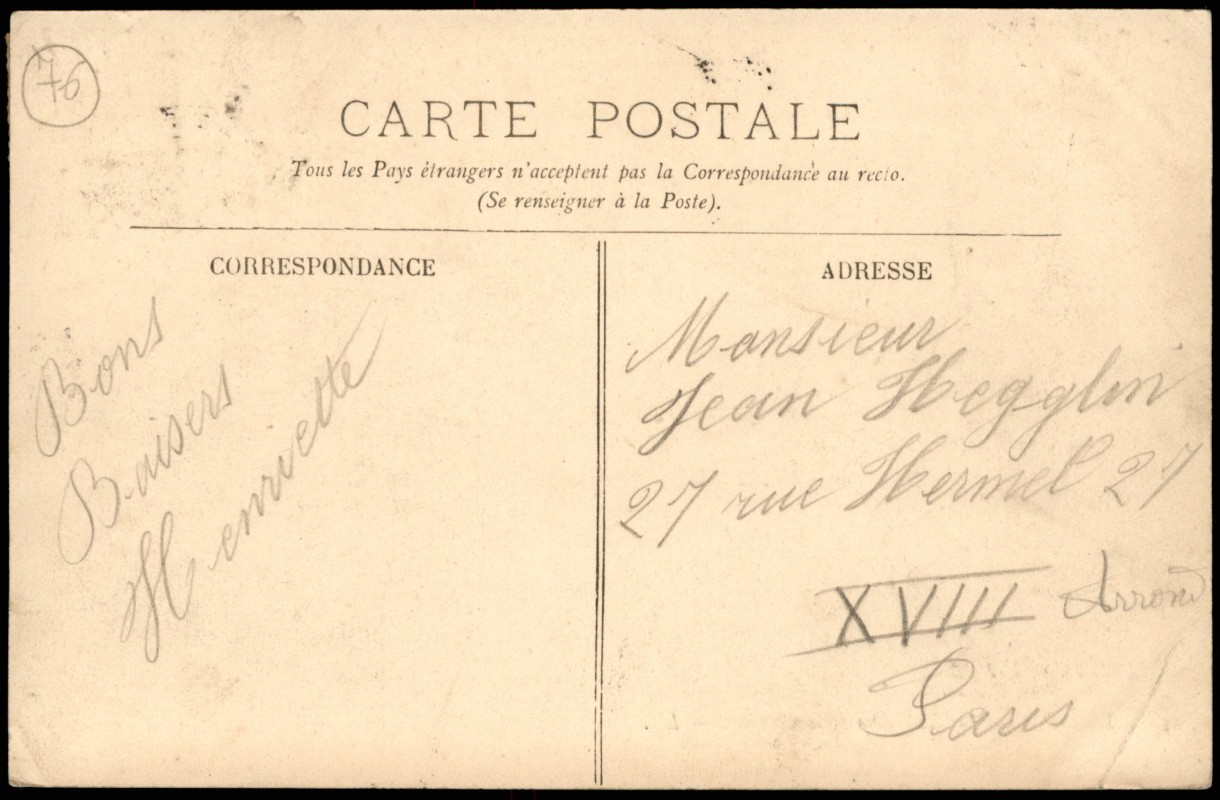 76
CARTE POSTALE
Tous les Pays étrangers n'acceptent pas la Correspondance au recto.
(Se renseigner à la Poste).
CORRESPONDANCE
Bons
Baisers
Henriette
ADRESSE
Monsieur
Jean Hegglin
27 rue Hermel 27
XVIII Arrond
Paris